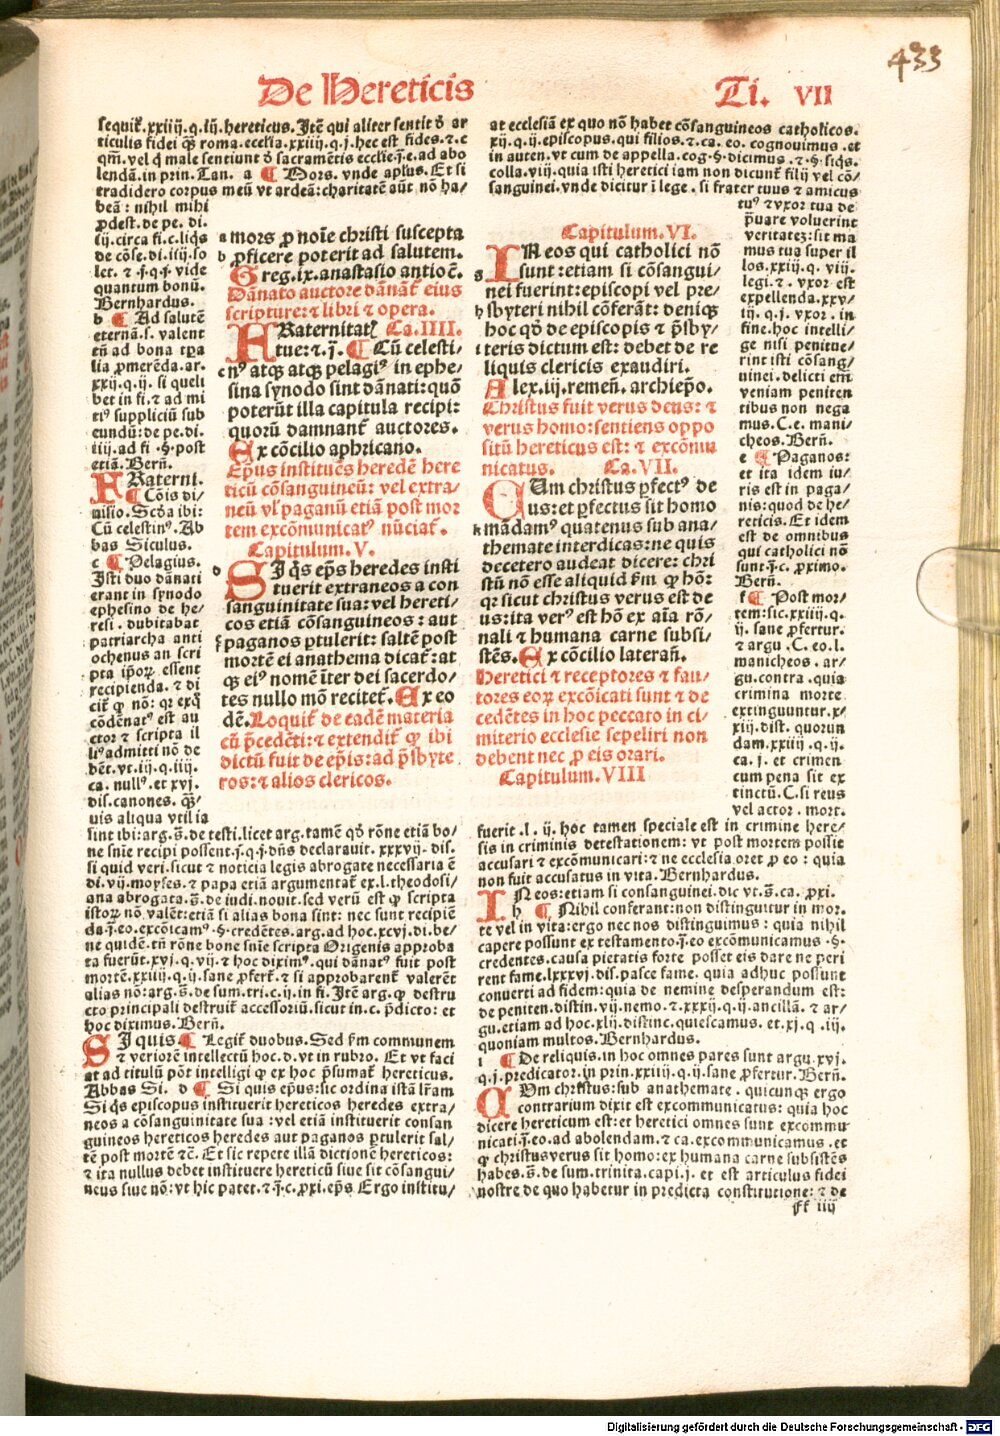 433
De Hereticis
Ti. VII
sequit᷑.xxiiij.q.iij.hereticus.Itē qui aliter sentit ð ar
ticulis fidei qȝ roma.eccl'ia.xxiiij.q.j.hec est fides.⁊.c
lendā.in prin. Tan. a ¶ Mors. vnde apl'us. Et si
tradidero corpus meū vt ardeā: charitatē aūt nō ha/
beā: nihil mihi
ꝓdest.de pe. di.
iij.circa fi.c.liqs
let. ⁊ .j.q.j. vide
quantum bonū.
Bernhardus.
b ¶ Ad salutē
eternā.s. valent
tn̄ ad bona tꝑa
lia ꝓmerēda.ar.
xxij.q.ij. si queli
bet in fi.⁊ ad mi
tiꝰ suppliciū sub
eundū: de pe.di.
iiij.ad fi .§.post
etiā. Bern̄.
FRaterni.
¶ Cōis di/
uisio. Scďa ibi:
Cū celestinꝰ. Ab
bas Siculus.
c ¶ Pelagius.
Isti duo dānati
erant in synodo
ephesino de he/
resi . dubitabat
patriarcha anti
ochenus an scri
pta ipoꝝ essent
recipienda. ⁊ di
cit᷑ ꝙ nō: qꝛ exq̄
cōdēnatꝰ est au
ctor ⁊ scripta il
liꝰ admitti nō de
bēt.vt.iij.q.iiij.
ca. nullꝰ.et xvj.
dis.canones. qȝ/
uis aliqua vtilia
sint ibi: arg.s̄.de testi.licet arg.tamē qď rōne etiā bo/
ne snīe recipi possent.j.q.j.dn̄s declarauit. xxxvij. dis.
si quid veri.sicut ⁊ noticia legis abrogate necessaria ē
di.vij.moyses.⁊ papa etiā argumentat᷑ ex.l.theodosi/
ana abrogata.s̄.de iudi.nouit.sed verū est ꝙ scripta
istoꝝ nō valēt: etiā si alias bona sint: nec sunt recipiē
da.j̄.eo.excōicamꝰ.§.credētes.arg.ad hoc.xcvj.di.be/
ne quidē.tn̄ rōne bone snīe scripta Origenis approba
ta fuerūt.xvj.q.vij.⁊ hoc diximꝰ.qui dānatꝰ fuit post
mortē.xxiiij.q.ij.sane ꝓfert᷑.⁊ si approbarent᷑ valerēt
alias nō: arg.s̄.de sum.tri.c.ij.in fi. Itē arg.ꝙ destru
cto principali destruit᷑ accessoriū.sicut in.c. p̄dicto: et
hoc diximus. Bern̄.
SI quis ¶ Legit᷑ duobus. Sed fm communem
⁊ veriorē intellectū hoc.d.vt in rubro. Et vt faci
at ad titulū pōt intelligi ꝙ ex hoc p̄sumat᷑ hereticus.
Abbas Si. d ¶ Si quis ep̄us: sic ordina istā lr̄am
Si qs episcopus instituerit hereticos heredes extra/
neos a cōsanguinitate sua: vel etiā instituerit consan
guineos hereticos heredes aut paganos p̄tulerit sal/
tē post mortē ⁊c̄. Et sic repete illā dictionē hereticos:
⁊ ita nullus debet instituere hereticū siue sit cōsangui/
neus siue nō: vt hic patet.⁊.j̄.c.ꝓxi.ep̄s Ergo institu/
a mors ꝓ noīe christi suscepta
b ꝓficere poterit ad salutem.
Greg.ix.anastasio antioc̄.
Dānato auctore dānāt᷑ eius
scripture: ⁊ libri ⁊ opera.
FRaternitat᷑ Ca.IIII.
tue: ⁊.j̄. ¶ Cū celesti/
c nꝰ atqȝ atqȝ pelagiꝰ in ephe/
sina synodo sint dānati: quō
poterūt illa capitula recipi:
quorū damnant᷑ auctores.
Ex cōcilio aphricano.
Ep̄us instituēs heredē here
ticū cōsanguineū: vel extra/
neū vl' paganū etiā post mor
tem excōmunicatꝰ nūciat᷑.
Capitulum.V.
d SI qs ep̄s heredes insti
tuerit extraneos a con
sanguinitate sua: vel hereti/
cos etiā cōsanguineos: aut
f paganos p̄tulerit: saltē post
mortē ei anathema dicat᷑: at
qȝ eiꝰ nomē iter dei sacerdo/
tes nullo mō recitet᷑. Ex eo
dē. Loquit᷑ de eadē materia
cū p̄cedēti: ⁊ extendit᷑ ꝙ ibi
dictū fuit de ep̄is: ad p̄sbyte
ros: ⁊ alios clericos.
at ecclesiā ex quo nō habet cōsanguineos catholicos.
xij.q.ij.episcopus.qui filios.⁊.ca. eo. cognouimus .et
in auten.vt cum de appella.cog.§.dicimus .⁊ .§. siqs.
colla.viij.quia isti heretici iam non dicunt᷑ filij vel cō/
sanguinei.vnde dicitur i lege . si frater tuus ⁊ amicus
tuꝰ ⁊ vxor tua de
p̄uare voluerint
veritatez: sit ma
mus tua super il
los.xxiij.q. viij.
legi.⁊ . vxor est
expellenda.xxv/
iij. q.j. vxor . in
fine.hoc intelli/
ge nisi penitue/
rint isti cōsang/
uinei.delicti em̄
veniam peniten
tibus non nega
mus.C.e. mani/
cheos.Bern̄.
e ¶ Paganos:
et ita idem iu/
ris est in paga/
nis: quod de he/
reticis.Et idem
est de omnibus
qui catholici nō
sunt.j̄.c. ꝓximo.
Bern̄.
f ¶ Post mor/
tem: sic.xxiiij.q.
ij. sane ꝓfertur.
⁊ argu .C. eo.l.
manicheos . ar/
gu.contra .quia
crimina morte
extinguuntur.x/
xiij.dist. quorun
dam.xxiiij .q.ij.
ca. j. et crimen
cum pena sit ex
tinctū.C.si reus
vel actor . mort.
fuerit .l. ij. hoc tamen speciale est in crimine here/
sis in criminis detestationem: vt post mortem possit
accusari ⁊ excōmunicari: ⁊ ne ecclesia oret ꝓ eo : quia
non fuit accusatus in vita. Bernhardus.
IN eos: etiam si consanguinei.dic vt.s̄.ca. ꝓxi.
h ¶ Nihil conferant: non distinguitur in mor.
te vel in vita: ergo nec nos distinguimus : quia nihil
capere possunt ex testamento.j̄.eo excōmunicamus .§.
credentes.causa pietatis forte posset eis dare ne peri
rent fame.lxxxvj.dis.pasce fame. quia adhuc possunt
conuerti ad fidem: quia de nemine desperandum est:
de peniten.distin.vij.nemo.⁊.xxxij.q.ij.ancillā. ⁊ ar/
gu.etiam ad hoc.xlij.distinc.quiescamus. et.xj.q .iij.
quoniam multos.Bernhardus.
i ¶ De reliquis.in hoc omnes pares sunt argu.xvj.
q.j.predicator.in prin.xxiiij.q.ij.sane ꝓfertur. Bern̄.
CUm christus: sub anathemate . quicunqȝ ergo
contrarium dixit est excommunicatus: quia hoc
dicere hereticum est: et heretici omnes sunt excommu
nicati.j̄.eo.ad abolendam.⁊ ca.excommunicamus .et
ꝙ christus verus sit homo: ex humana carne subsistēs
habes.s̄.de sum.trinita.capi.j. et est articulus fidei
nostre de quo habetur in predicta constitutione: ⁊ de
ff iiij
Capitulum.VI.
g IN eos qui catholici nō
sunt: etiam si cōsangui/
nei fuerint: episcopi vel pre/
h sbyteri nihil cōferāt: deniqȝ
hoc qď de episcopis ⁊ p̄sby/
i teris dictum est: debet de re
liquis clericis exaudiri.
Alex.iij.remen̄. archiep̄o.
Christus fuit verus deus: ⁊
verus homo: sentiens oppo
sitū hereticus est: ⁊ excōmu
nicatus. Ca.VII.
CUm christus ꝑfectꝰ de
us: et ꝑfectus sit homo
k mādamꝰ quatenus sub ana/
themate interdicas: ne quis
decetero audeat dicere: chri
stū nō esse aliquid fm ꝙ hō:
qꝛ sicut christus verus est de
us: ita verꝰ est hō ex aīa rō/
nali ⁊ humana carne subsi/
stēs. Ex cōcilio lateran̄.
Heretici ⁊ receptores ⁊ fau/
tores eoꝝ excōicati sunt ⁊ de
cedētes in hoc peccato in ci/
miterio ecclesie sepeliri non
debent nec ꝓ eis orari.
Capitulum.VIII
Digitalisierung gefördert durch die Deutsche Forschungsgemeinschaft - DFG